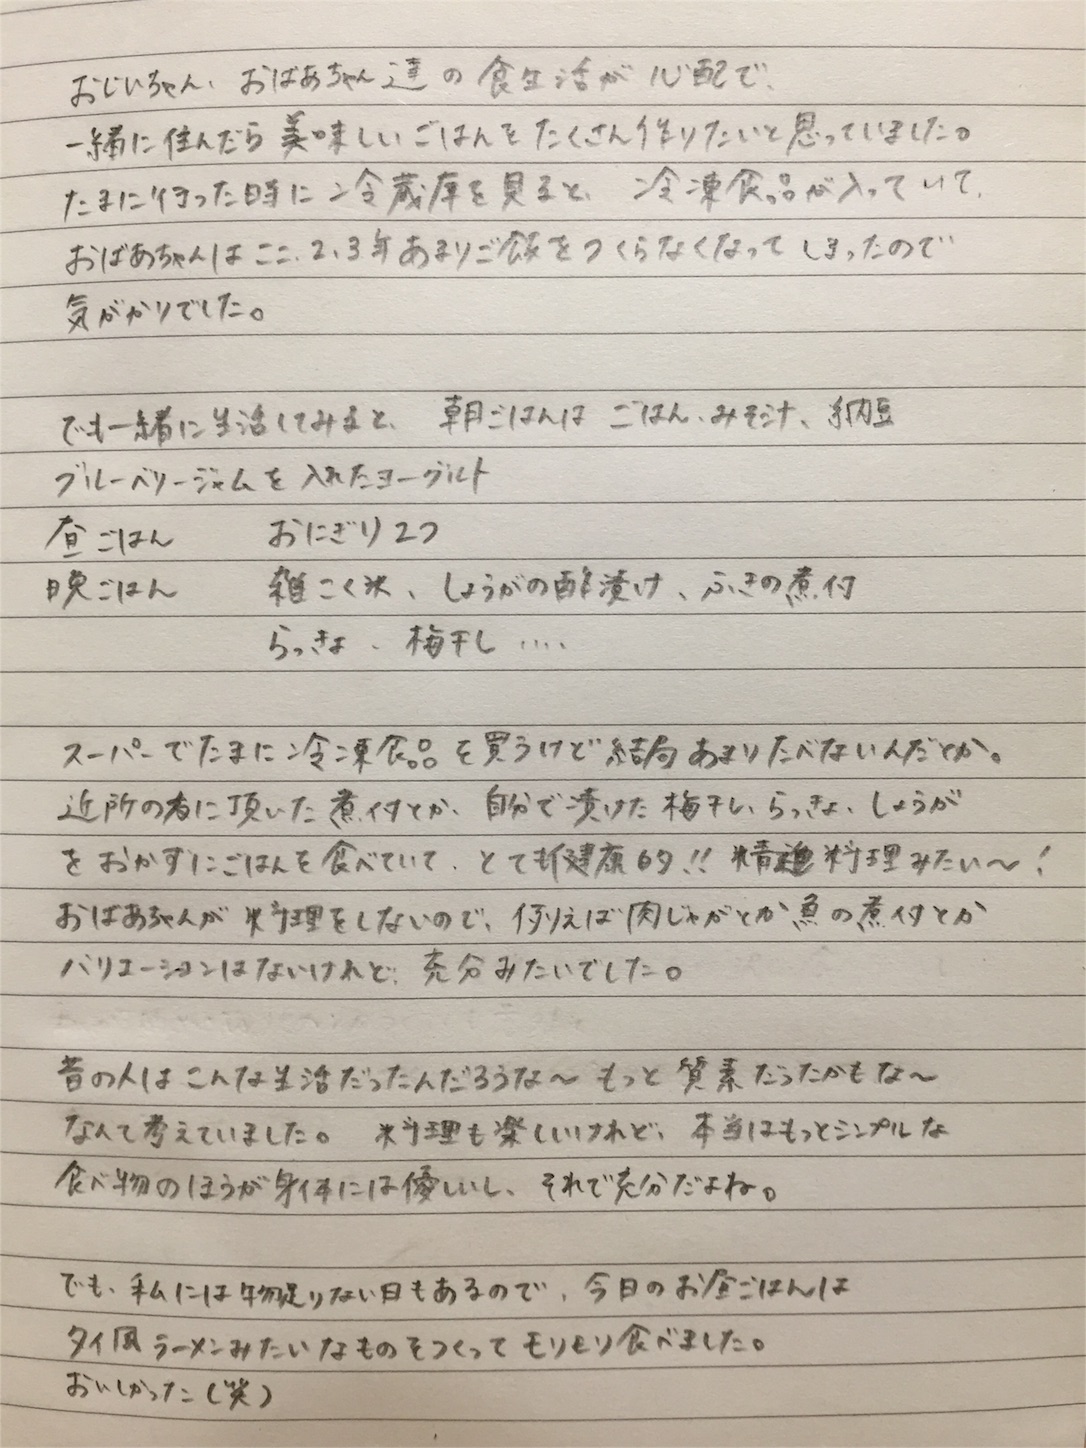 おじいちゃん、おばあちゃん達の食生活が心配で、
一緒に住んだら美味しいごはんをたくさん作りたいと思っていました。
たまに行った時に冷蔵庫を見ると、冷凍食品が入っていて、
おばあちゃんはここ、2、3年あまりご飯をつくらなくなってしまったので
気がかりでした。
でも一緒に生活してみると、朝ごはんは ごはん、みそ汁、納豆
ブルーベリージャムを入れたヨーグルト
昼ごはん おにぎり2つ
晩ごはん 雑こく米、しょうがの酢漬け、ふきの煮付
らっきょ、梅干し ‥‥
スーパーでたまに冷凍食品を買うけど結局あまりたべないんだとか。
近所の方に頂いた煮付とか、自分で漬けた梅干し、らっきょ、しょうが
をおかずにごはんを食べていて、とても健康的!! 精進料理みたい〜!
おばあちゃんが料理をしないので、例えば肉じゃがとか魚の煮付とか
バリエーションはないけれど、充分みたいでした。
昔の人はこんな生活だったんだろうな〜 もっと質素だったかもな〜
なんて考えていました。 料理も楽しいけれど、本当はもっとシンプルな
食べ物のほうが身体には優しいし、それで充分だよね。
でも、私には物足りない日もあるので、今日のお昼ごはんは
タイ風ラーメンみたいなものをつくってモリモリ食べました。
おいしかった(笑)